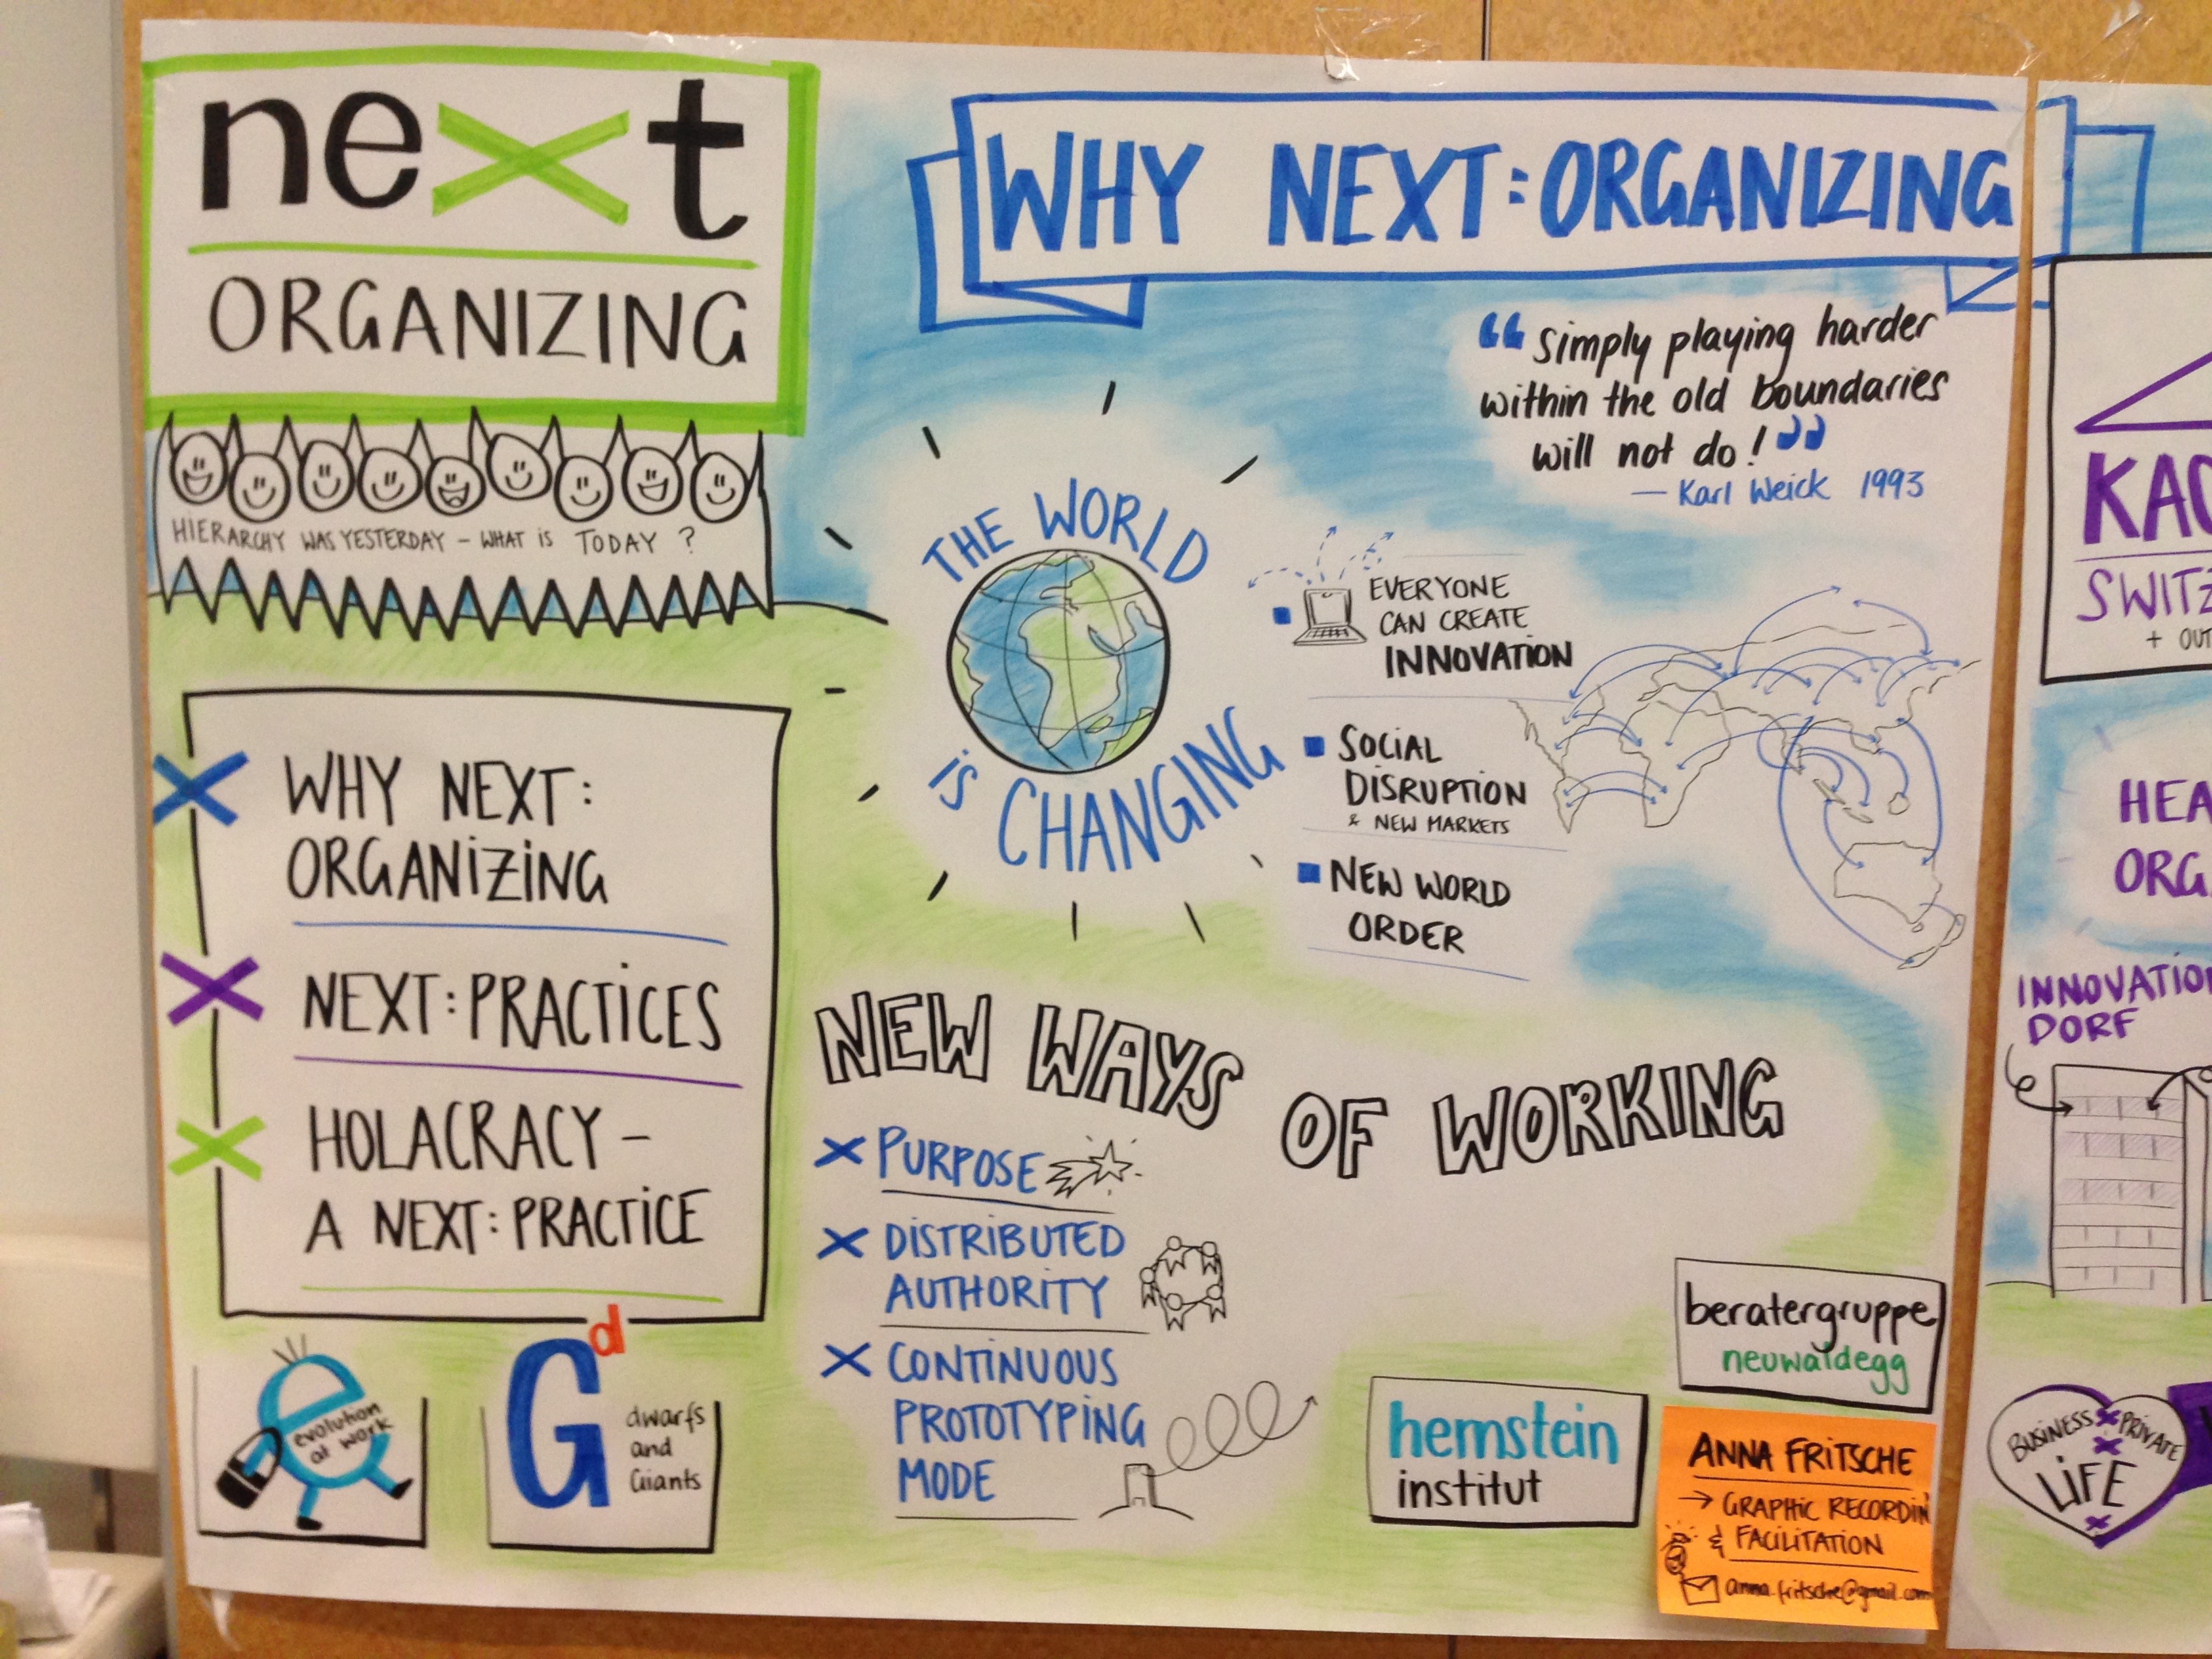 next
ORGANIZING
HIERARCHY WAS YESTERDAY - WHAT iS TODAY ?
WHY NEXT:
ORGANiZiNG
NEXT:PRACTiCES
HOLACRACY -
A NEXT:PRACTiCE
evolution
at work
Gd
dwarfs
and
Giants
WHY NEXT:ORGANIZING
“simply playing harder
within the old boundaries
will not do!”
— Karl Weick 1993
THE WORLD
iS CHANGING
EVERYONE
CAN CREATE
INNOVATiON
SOCiAL
DiSRUPTiON
& NEW MARKETS
NEW WORLD
ORDER
NEW WAYS OF WORKING
PURPOSE
DiSTRiBUTED
AUTHORiTY
CONTiNUOUS
PROTOTYPiNG
MODE
beratergruppe
neuwaldegg
hernstein
institut
ANNA FRiTSCHE
→ GRAPHiC RECORDiN
& FACiLiTATiON
anna.fritsche@gmail.com
KAO
SWITZ
+ OUT
HEA
ORG
INNOVATIO
DORF
BUSiNESS x PRiVATE
LiFE